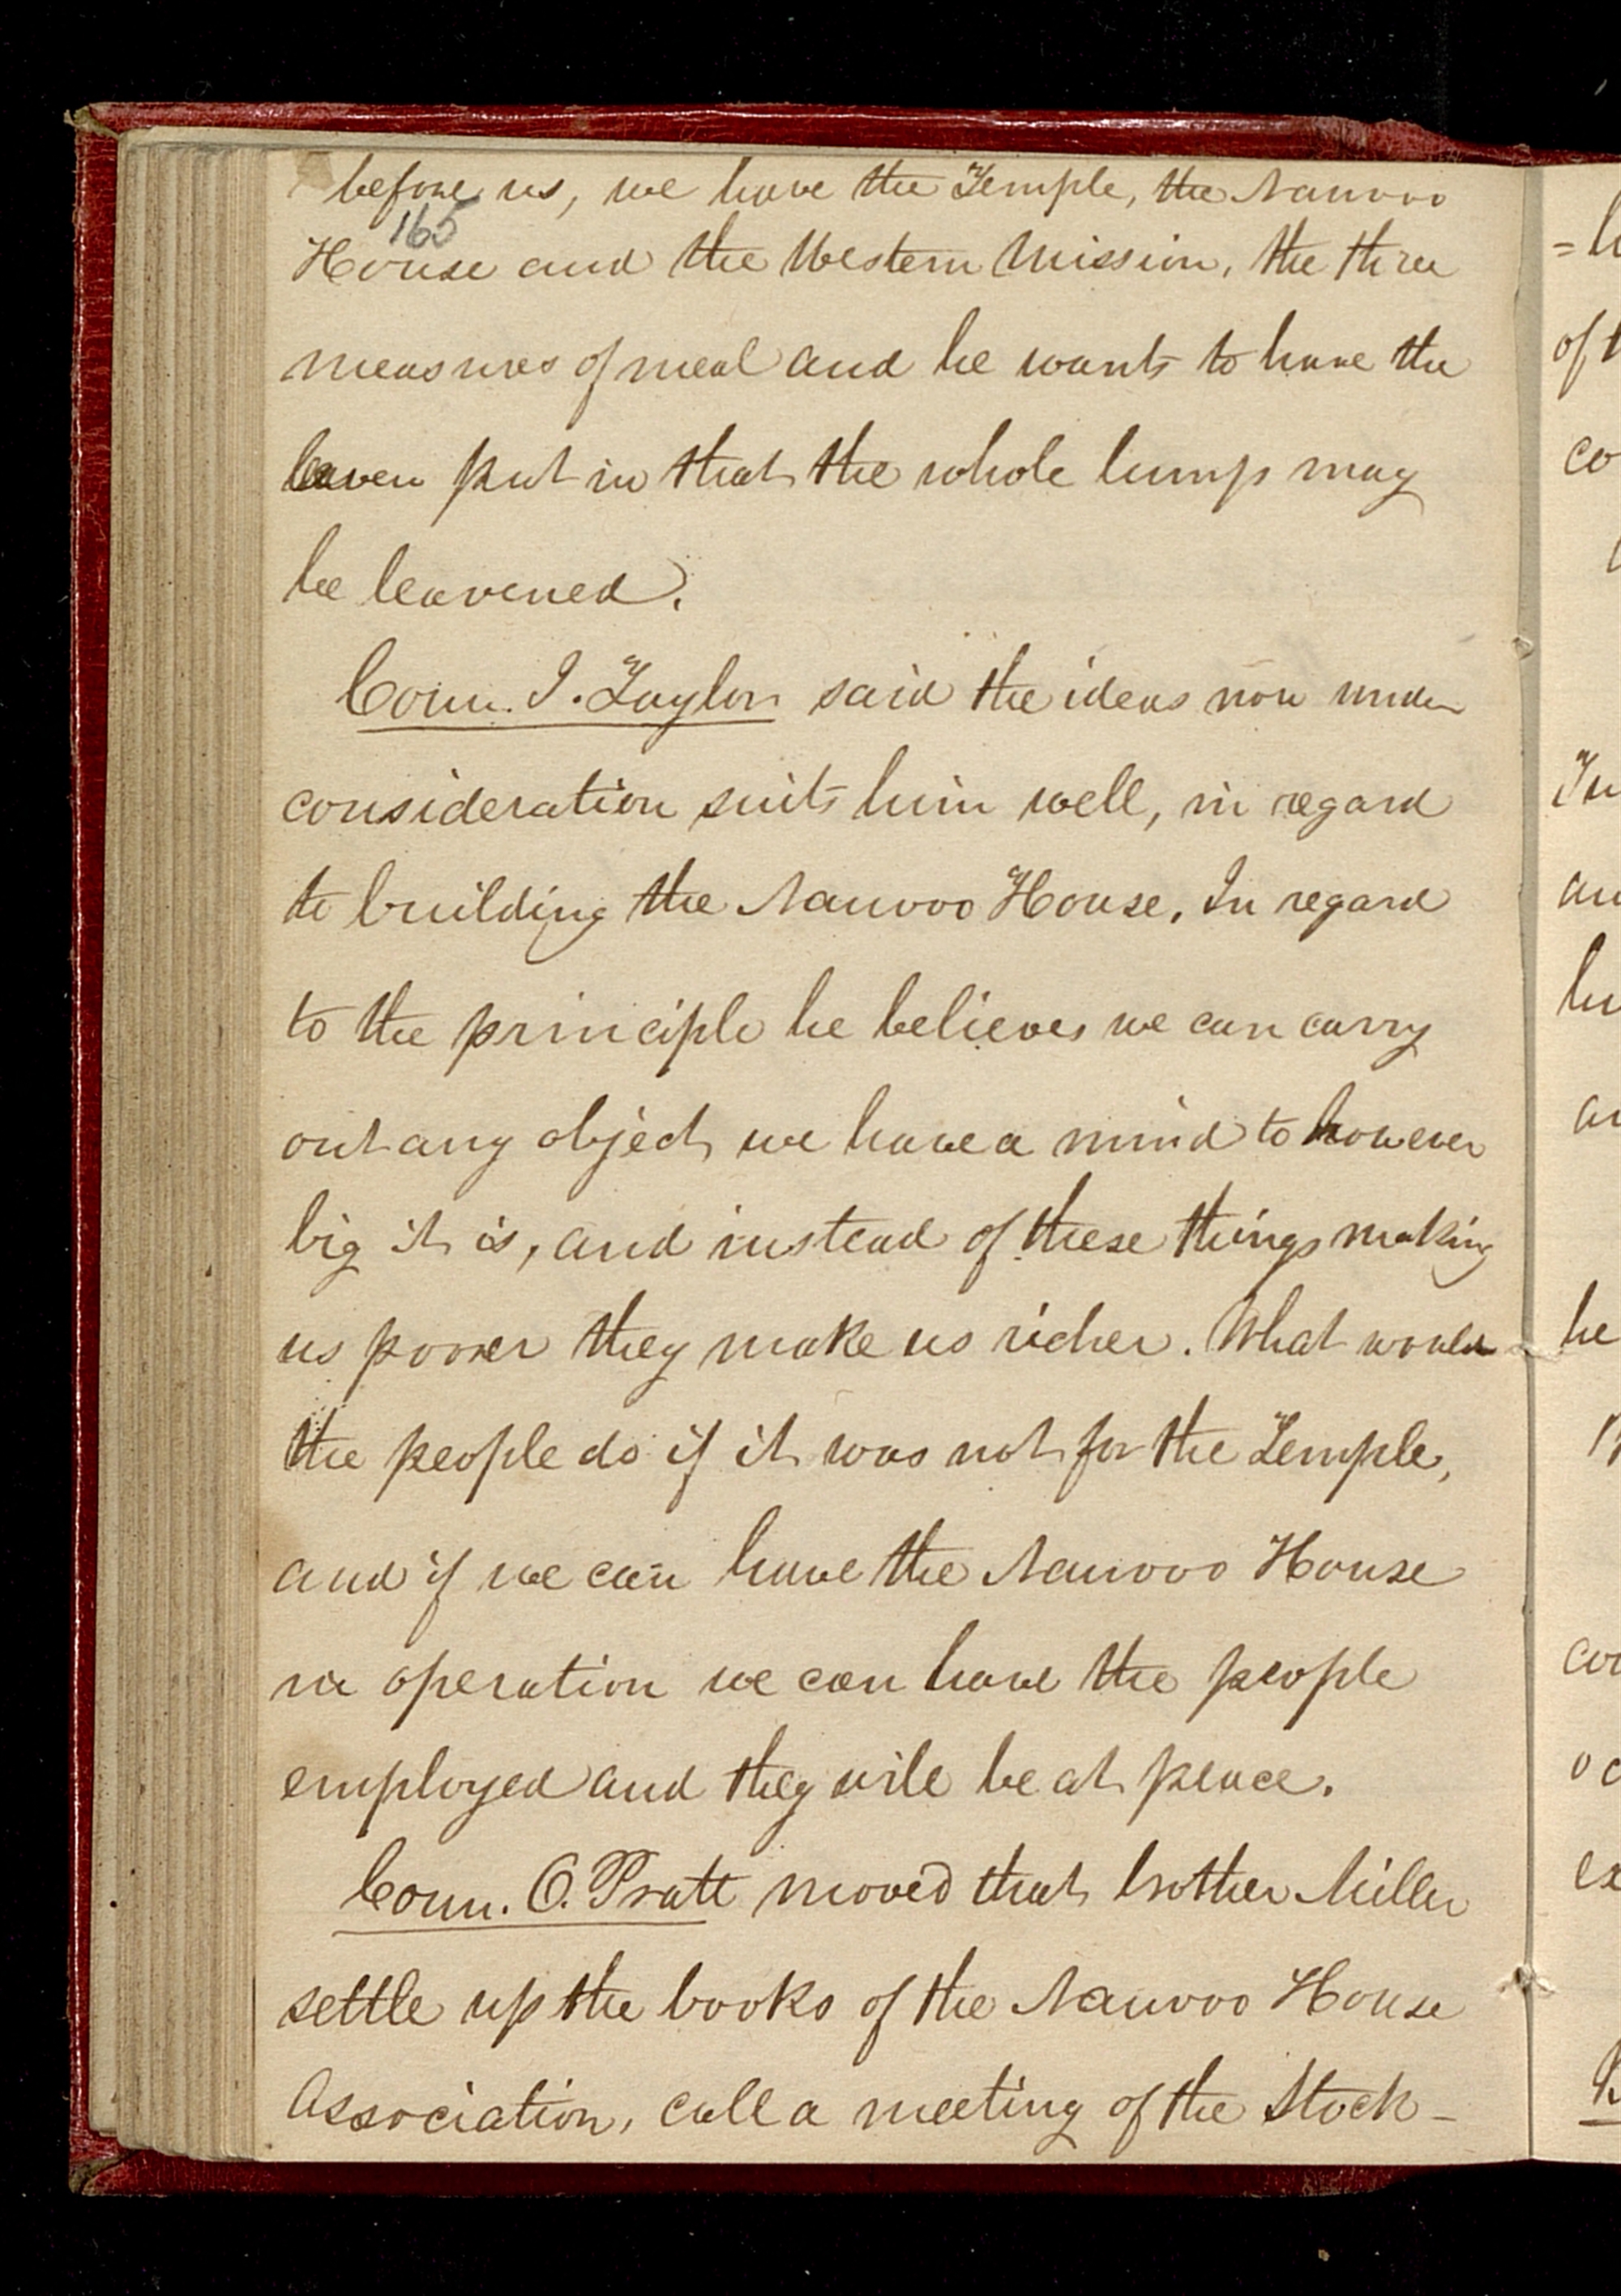 before us, we have the Temple, the Nauvoo
165
House and the Western Mission, the three
measures of meal and he wants to have the
leaven put in that the whole lump may
be leavened.
Coun. J. Taylor said the ideas now under
consideration suits him well, in regard
to building the Nauvoo House, In regard
to the principle he believes we can carry
out any object we have a mind to however
big it is, and instead of these things making
us poorer they make us richer. What would
the people do if it was not for the Temple,
and if we can have the Nauvoo House
in operation we can have the people
employed and they will be at peace.
Coun. O. Pratt moved that brother Miller
settle up the books of the Nauvoo House
Association, call a meeting of the Stock-